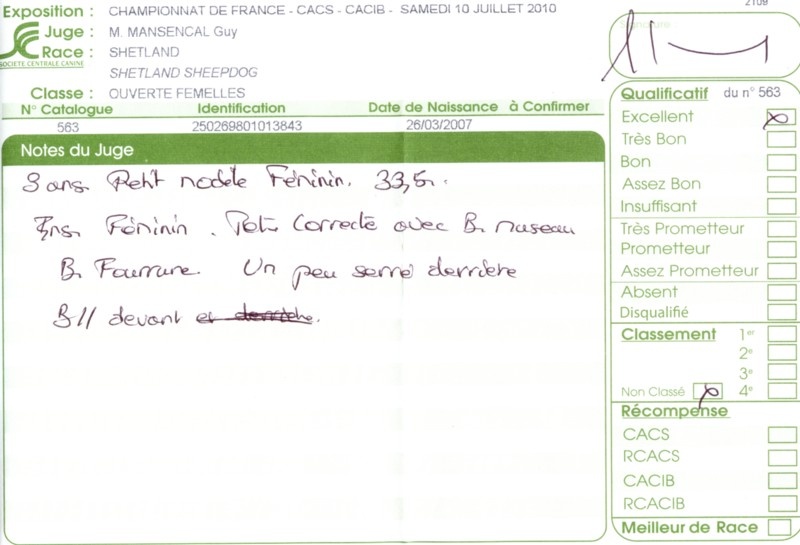 2109
Exposition : CHAMPIONNAT DE FRANCE - CACS - CACIB - SAMEDI 10 JUILLET 2010
Juge : M. MANSENCAL Guy
Race : SHETLAND
SOCIETE CENTRALE CANINE
SHETLAND SHEEPDOG
Classe : OUVERTE FEMELLES
N° Catalogue Identification Date de Naissance à Confirmer
563 250269801013843 26/03/2007
Notes du Juge
3 ans Petit modèle Féminin. 33,5
Féminin. Tête correcte avec B. museau
B. Fourrure. Un peu serré derrière
B // devant et derrière.
Signature
Qualificatif du n° 563
Excellent
Très Bon
Bon
Assez Bon
Insuffisant
Très Prometteur
Prometteur
Assez Prometteur
Absent
Disqualifié
Classement 1er
2e
3e
Non Classé 4e
Récompense
CACS
RCACS
CACIB
RCACIB
Meilleur de Race